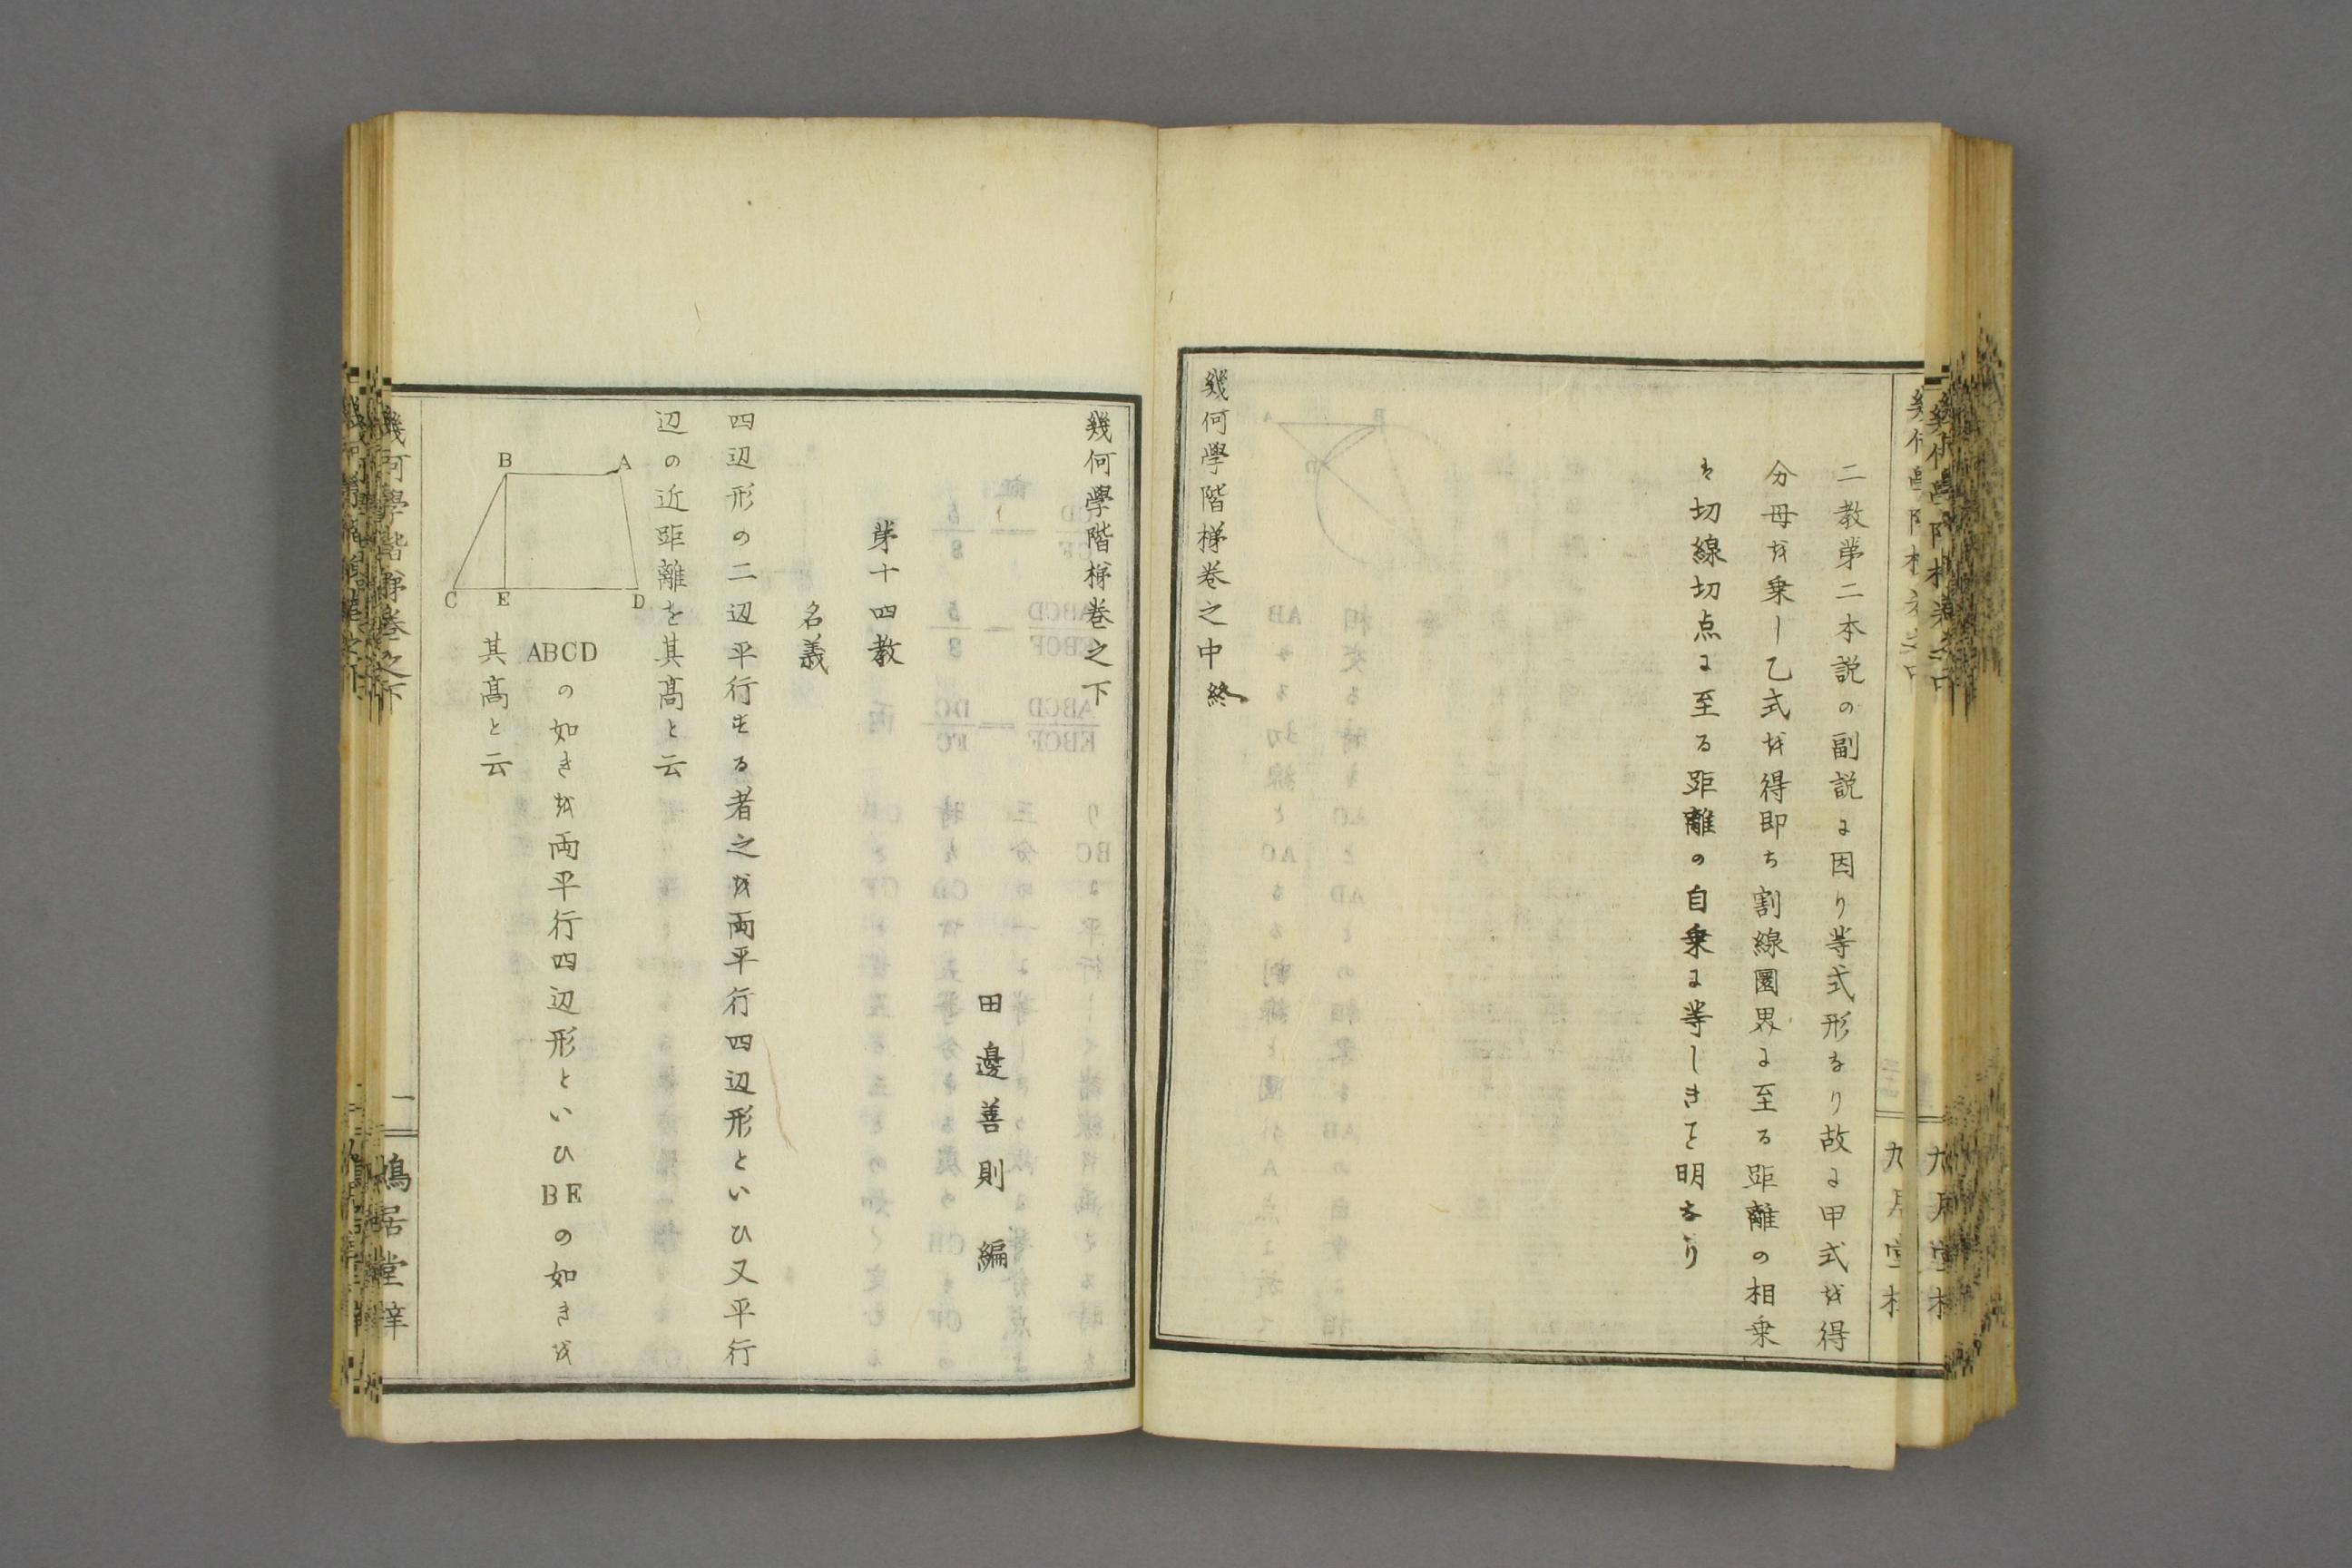 二教第二本説の副説に因り等式形なり故に甲式を得
分母を乗し乙式を得即ち割線圜界に至る距離の相乗
は切線切点に至る距離の自乗に等しきを明なり
幾何學階梯巻之中終
幾何學階梯巻之下
田邊善則編
第十四教
名義
四辺形の二辺平行せる者之を両平行四辺形といひ又平行
辺の近距離を其高と云
A
B
C
D
E
ABCDの如きを両平行四辺形といひBEの如きを
其高と云
幾何學階梯巻之下
一
鳩居堂梓